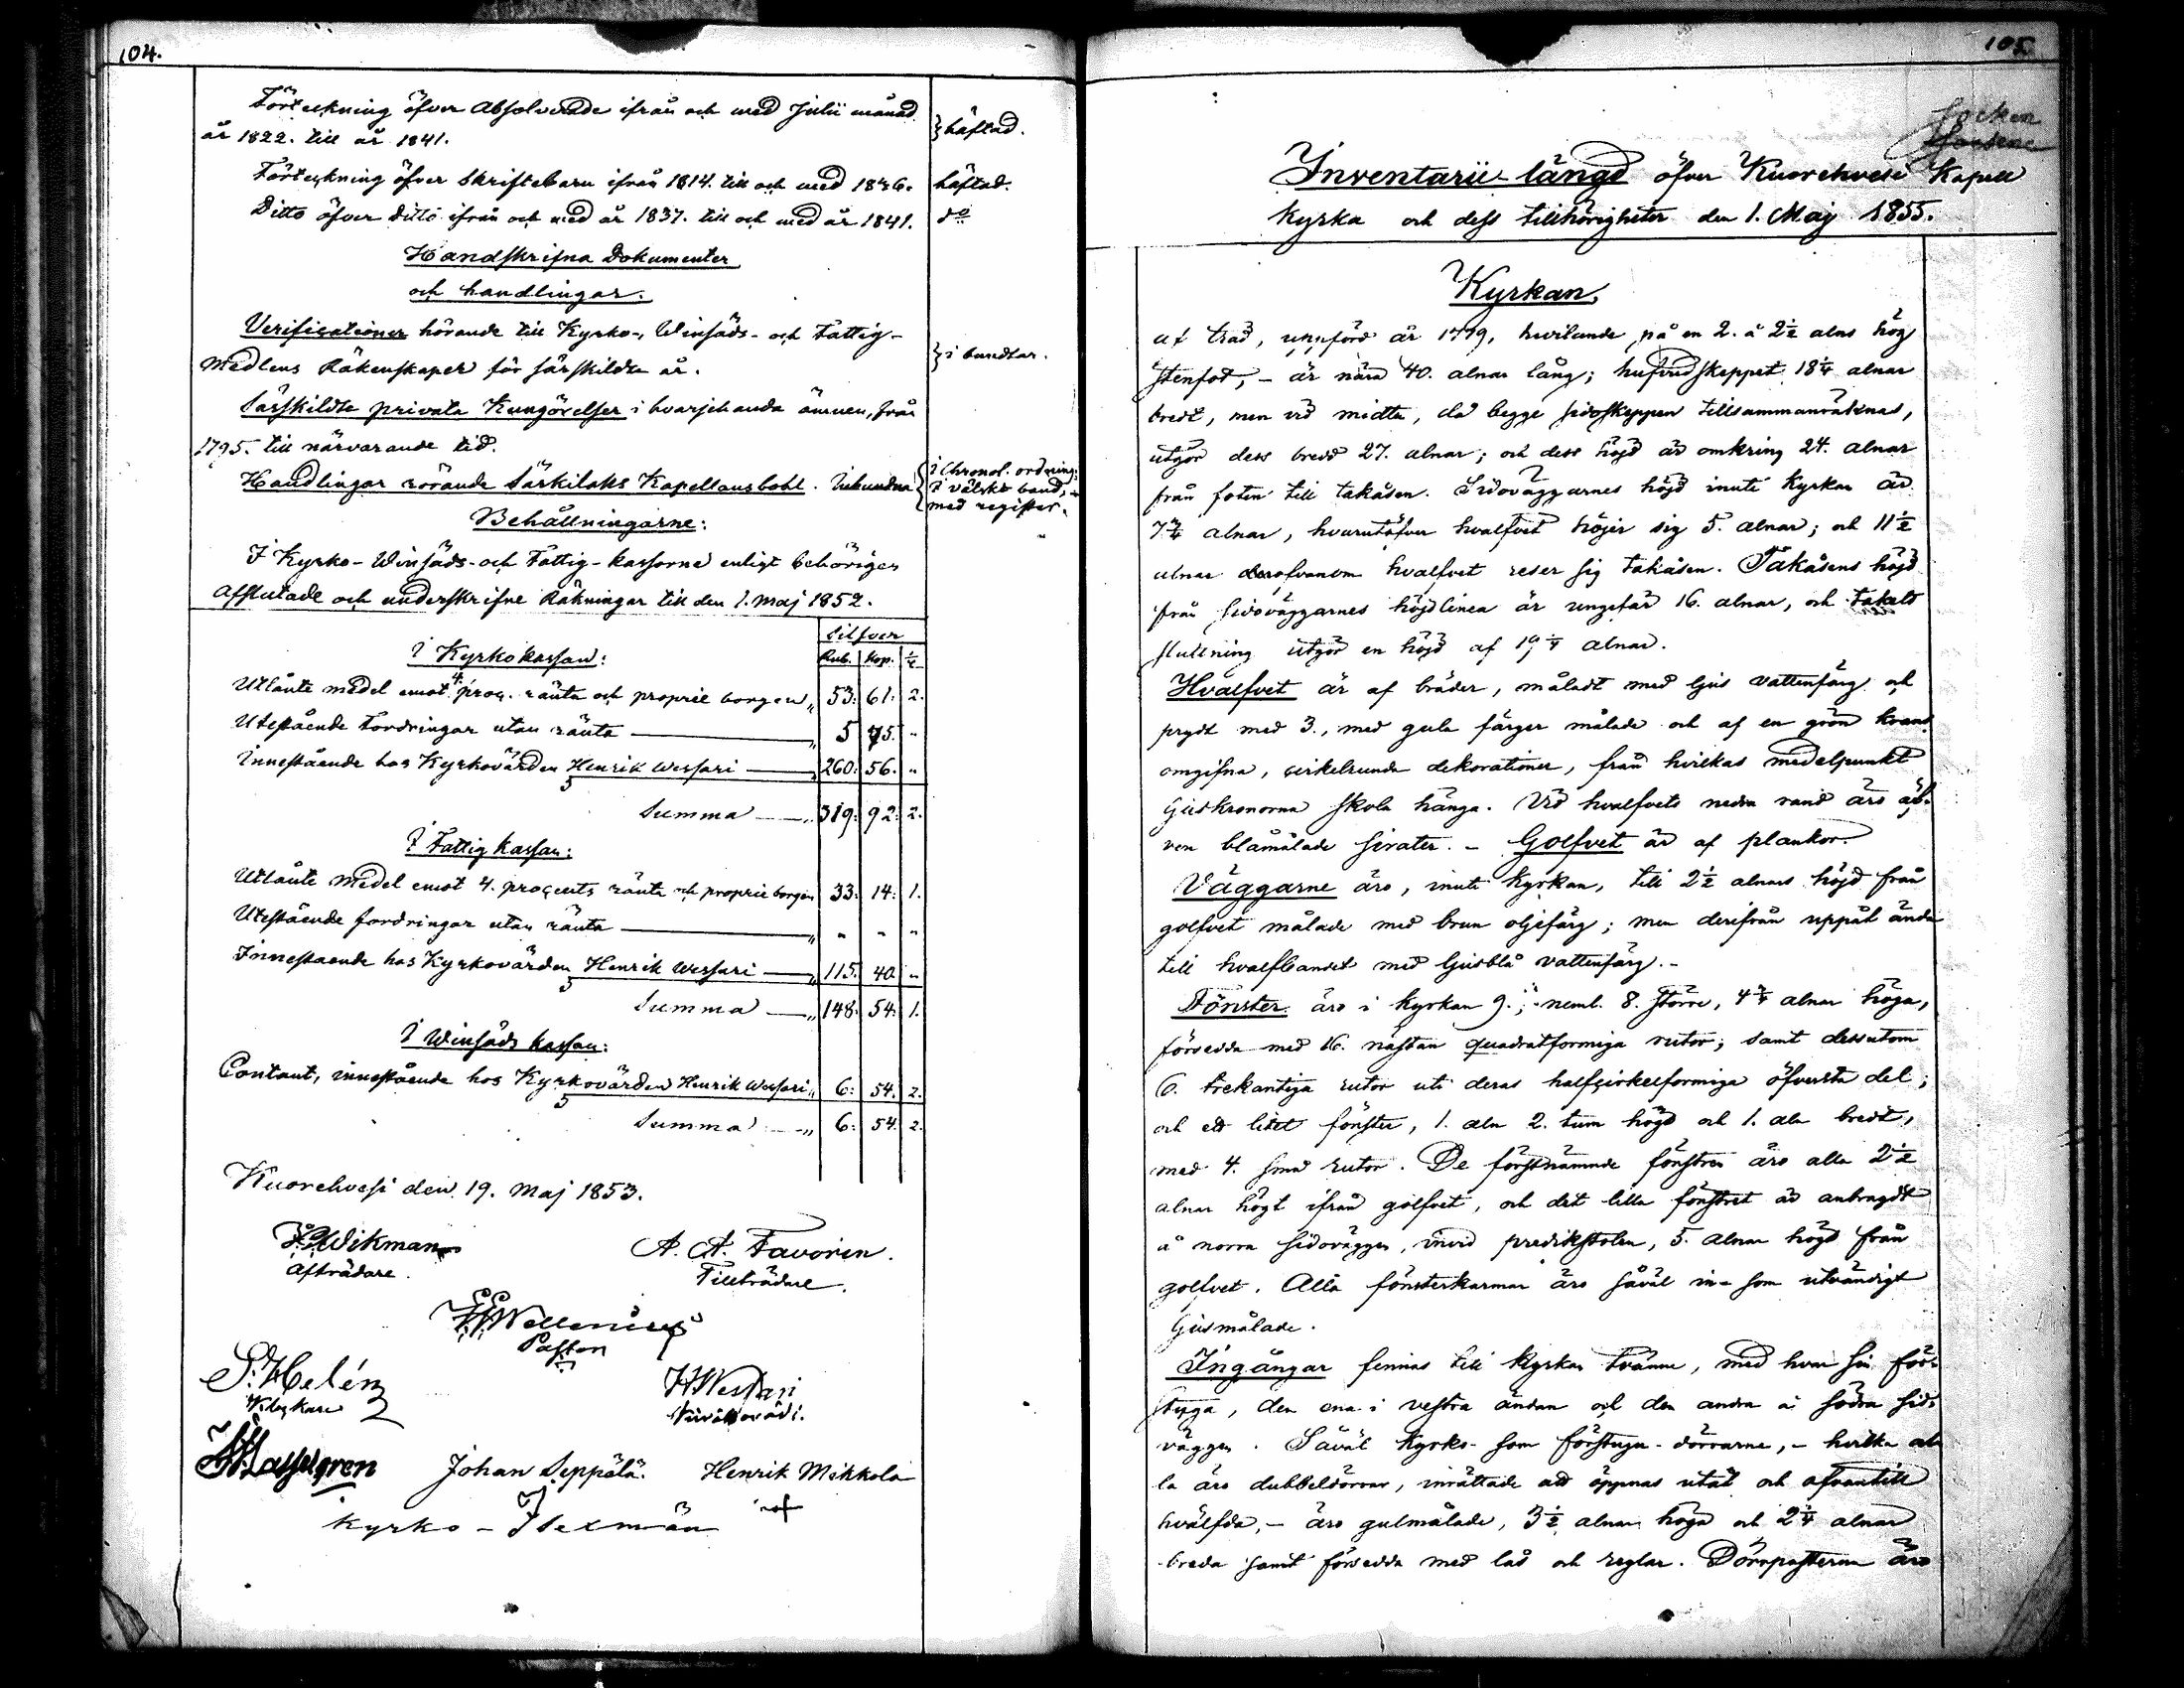 104.
Förteckning öfver Absolverade ifrån och med Julii månad
år 1822. till år 1841.
} häftad.
Förteckning öfver Skriftebarn ifrån 1814. till och med 1836.
häftad.
Ditto öfver ditto ifrån och med år 1837. till och med år 1841.
do
Handskrifna Dokumenter
och handlingar.
Verificationer hörande till Kyrko-, Winsäds- och Fattig-
Medlens Räkenskaper för särskildta år.
} i bundtar.
Särskildte private Kungörelser i hvarjehanda ämnen, från
1795. till närvarande tid.
Handlingar rörande Särkilaks Kapellansbohl. Inbundna
i Chronol. ordning;
i välskt band,
med register.
Behållningarne:
I Kyrko- Winsäds- och Fattig-kassorne enligt behörigen
afslutade och underskrifne Räkningar till den 1. Maj 1852.
Silfver
I Kyrkokassan:
Rub. Kop. ¼
Utlånte medel emot 4. proc. ränta och proprie borgen „ 53: 61: 2.
Utestående Fordringar utan ränta — „ 5 75. „
Innestående hos Kyrkovärden Henrik Wessari — „ 260: 56. „
Summa — „ 319: 92: 2.
I Fattigkassan:
Utlånte Medel emot 4. procents ränta och proprie borgen 33: 14: 1.
Utestående fordringar utan ränta — „ „ „ „
Innestaende hos Kyrkovärden Henrik Wessari — „ 115. 40. „
Summa — „ 148: 54: 1.
I Winsäds kassan:
Contant, innestående hos Kyrkovärden Henrik Wessari „ 6: 54. 2.
Summa — „ 6: 54: 2.
Kuorehvesi den 19. Maj 1853.
Wikman
Afträdare.
A. A. Favorin.
Tillträdare.
Wellenius
Pastor
P. Helén
Klockare
H Wessari
Hasselgren
Johan Seppälä.
Henrik Mikkola
Kyrko-Sexmän
105
Socken
Inventarii-längd öfver Kuorehvesi Kapell
kyrka och dess tillhörigheter den 1. Maj 1855.
Kyrkan,
af träd, uppförd år 1779, hvilande på en 2. à 2½ alns hög
stenfot, – är nära 40. alnar lång; hufvudskeppet 18¼ alnar
bredt, men vid midten, då begge sidoskeppen tillsammanräknas,
utgör dess bredd 27. alnar; och dess höjd är omkring 24. alnar
från foten till takåsen. Sidoväggarnes höjd inuti kyrkan är
7¾ alnar, hvarutöfver hvalfvet höjer sig 5. alnar; och 11½
alnar derofvanom hvalfvet reser sig takåsen. Takåsens höjd
från sidoväggarnes höjdlinea är ungefär 16. alnar, och takets
sluttning utgör en höjd af 19¼ alnar.
Hvalfvet är af bräder, måladt med ljus vattenfärg och
prydt med 3., med gula färger målade och af en grön krans
omgifna, cirkelrunda dekorationer, från hvilkas medelpunkt
ljuskronorna skola hänga. Vid hvalfvets nedra rand äro äf-
ven blåmålade sirater. – Golfvet är af plankor.
Väggarne äro, inuti kyrkan, till 2½ alnars höjd från
golfvet målade med brun oljefärg; men derifrån uppåt ända
till hvalfbandet med ljusblå vattenfärg. –
Fönster äro i kyrkan 9.; neml. 8. större, 4¾ alnar höga,
försedda med 16. nästan quadratformiga rutor; samt dessutom
6. trekantiga rutor uti deras halfcirkelformiga öfversta del;
och ett litet fönster, 1. aln 2. tum högt och 1. aln bredt,
med 4. små rutor. De förstnämnde fönstren äro alla 2½
alnar högt ifrån golfvet, och det lilla fönstret är anbragdt
å norra sidoväggen, invid predikstolen, 5. alnar högt från
golfvet. Alla fönsterkarmar äro såväl in- som utvändigt
ljusmålade.
Ingångar finnas till kyrkan tvänne, med hvar sin för-
stuga, den ena i vestra ändan och den andra å södra sid-
väggen. Såväl kyrko- som förstugu-dörrarne, – hvilka al-
la äro dubbeldörrar, inrättade att öppnas utåt och ofvantill
hvälfda, – äro gulmålade, 3½ alnar höga och 2¼ alnar
breda samt försedda med lås och reglar. Dörrposterna äro